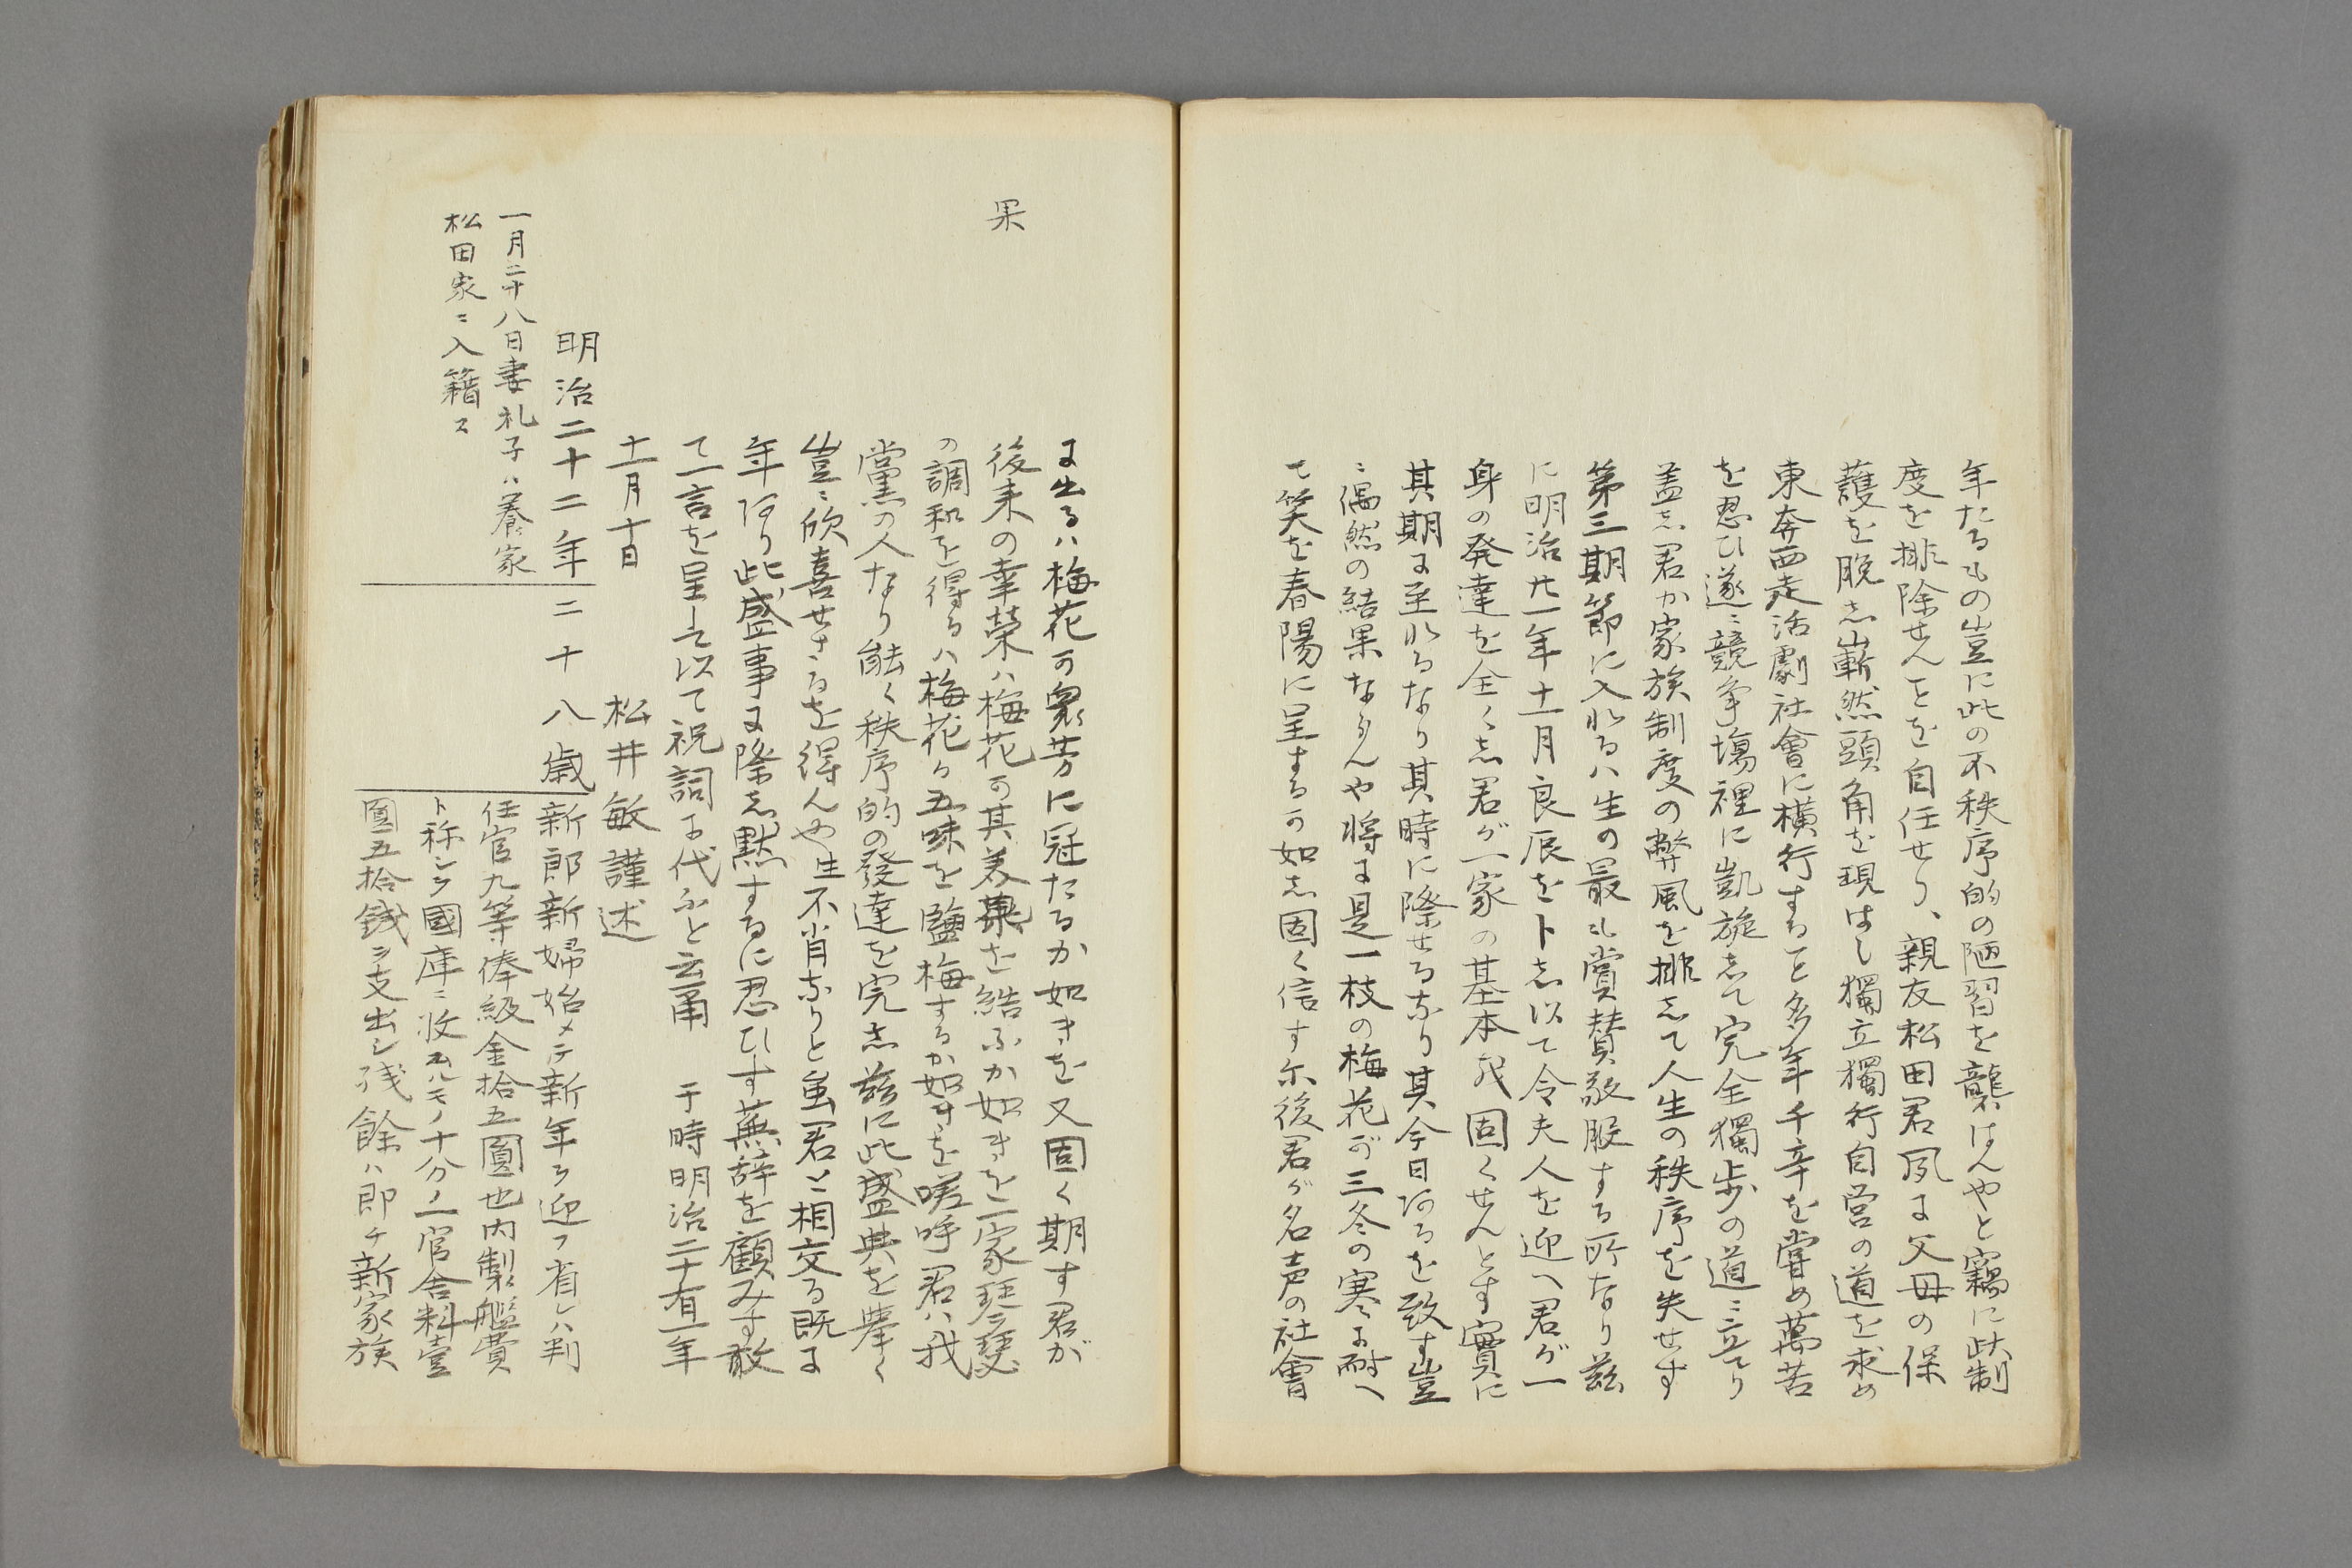 年たるもの豈に此の不秩序的の陋習を襲はんやと竊に此制
度を排除せんことを自任せり、親友松田君夙に父母の保
護を脱し嶄然頭角を現はし獨立獨行自営の道を求め
東奔西走活劇社會に横行すること多年千辛を嘗め萬苦
を忍ひ遂ニ競争塲裡に凱旋して完全獨歩の道ニ立てり
盖し君か家族制度の弊風を排して人生の秩序を失せす
第三期節に入れるハ生の最も賞賛敬服する所なり茲
に明治廿一年十一月良辰を卜し以て令夫人を迎へ君が一
身の発達を全くし君が一家の基本を固くせんとす實に
其期に至れるなり其時に際せるなり其今日あるを致す豈
ニ偶然の結果ならんや將に是一枝の梅花が三冬の寒に耐へ
て笑を春陽に呈するの如し固く信す尓後君が名声の社會
に出るハ梅花の衆芳に冠たるか如きを又固く期す君が
後来の幸榮ハ梅花の其美菓を結ふか如きを一家琴瑟
の調和を得るハ梅花の五味を鹽梅するか如きを嗟呼君ハ我
黨の人なり能く秩序的の發達を完し茲に此盛典を擧く
豈ニ欣喜せさるを得んや生不肖なりと虽君と相交る既に
年あり此盛事に際し默するに忍ひす蕪辞を顧みす敢
て一言を呈し以て祝詞に代ふと云爾 于時明治二十有一年
十一月十日 松井敏謹述
果
明治二十二年二十八歳
一月二十八日妻礼子ハ養家
松田家ニ入籍ス
新郎新婦始メテ新年ヲ迎フ省レハ判
任官九等俸級金拾五圓也内製艦費
ト称シテ國庫ニ收ムルモノ十分ノ一官舎料壹
圓五拾銭ヲ支出シ残餘ハ即チ新家族